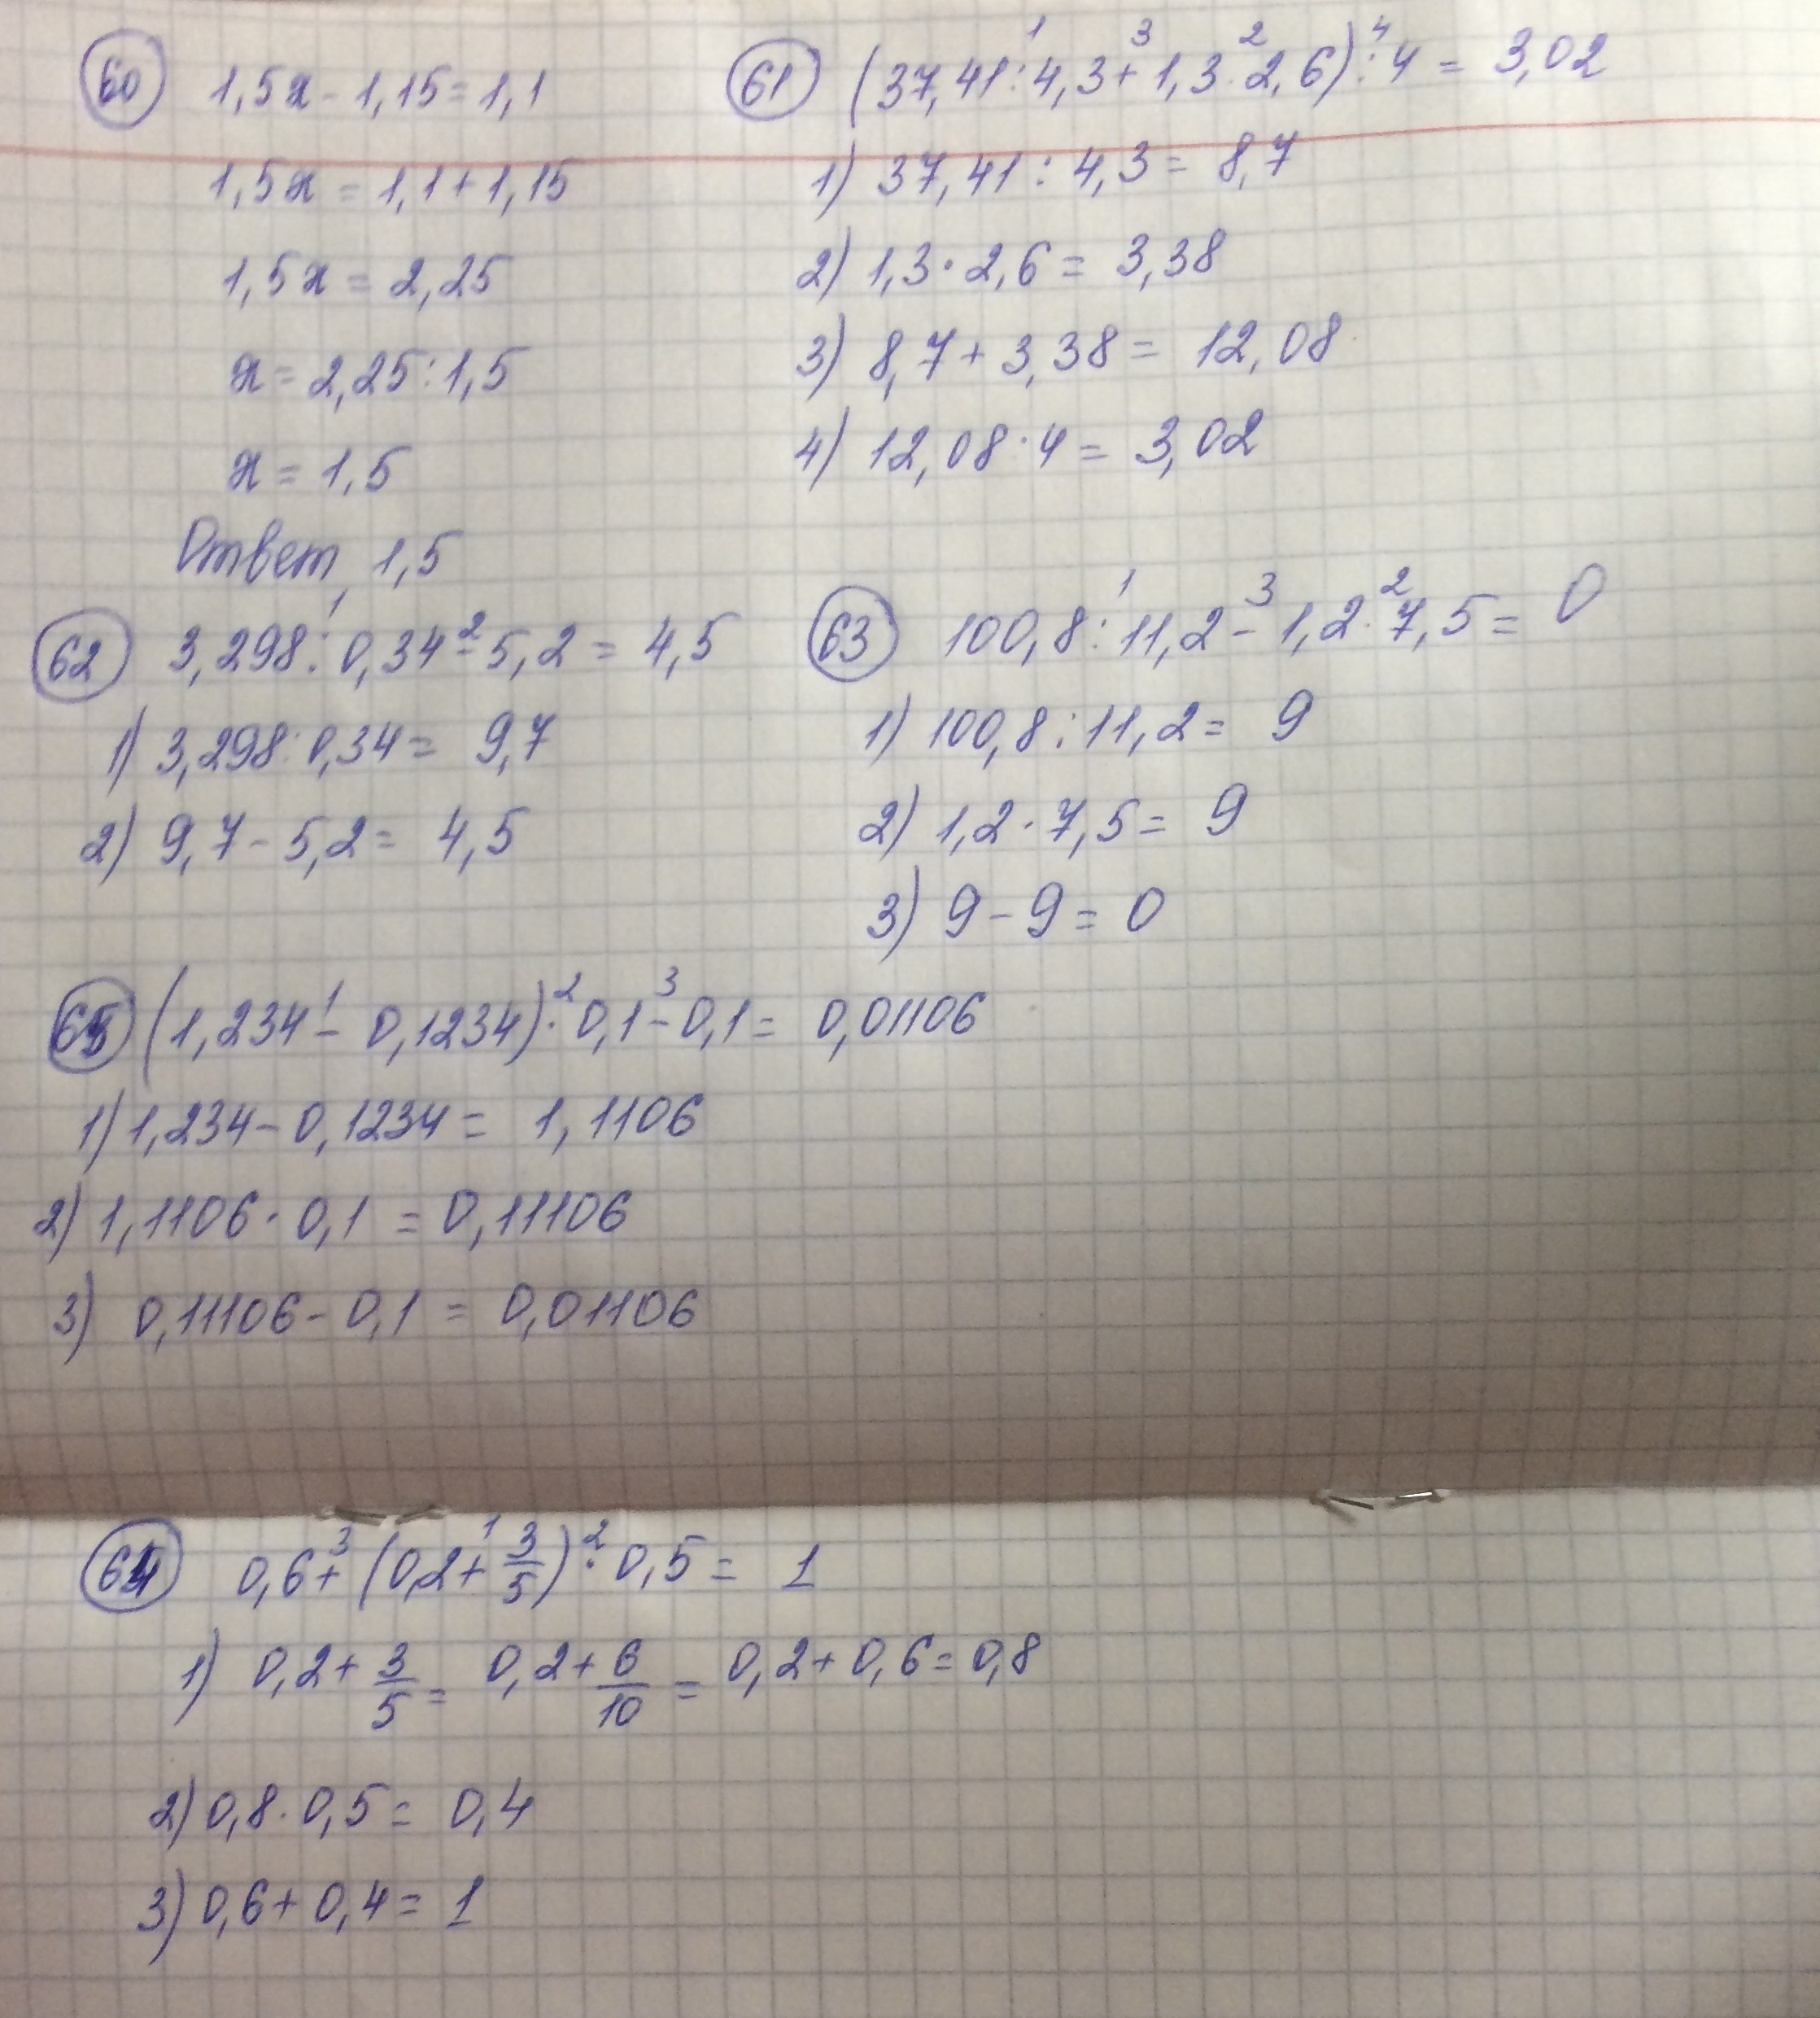 60 1,5x - 1,15 = 1,1
1,5x = 1,1 + 1,15
1,5x = 2,25
x = 2,25 : 1,5
x = 1,5
Ответ, 1,5
61 (37,41 : 4,3 + 1,3 · 2,6) : 4 = 3,02
1) 37,41 : 4,3 = 8,7
2) 1,3 · 2,6 = 3,38
3) 8,7 + 3,38 = 12,08
4) 12,08 : 4 = 3,02
62 3,298 : 0,34 - 5,2 = 4,5
1) 3,298 : 0,34 = 9,7
2) 9,7 - 5,2 = 4,5
63 100,8 : 11,2 - 1,2 · 7,5 = 0
1) 100,8 : 11,2 = 9
2) 1,2 · 7,5 = 9
3) 9 - 9 = 0
65 (1,234 - 0,1234) · 0,1 - 0,1 = 0,01106
1) 1,234 - 0,1234 = 1,1106
2) 1,1106 · 0,1 = 0,11106
3) 0,11106 - 0,1 = 0,01106
64 0,6 + (0,2 + 3/5) · 0,5 = 1
1) 0,2 + 3/5 = 0,2 + 6/10 = 0,2 + 0,6 = 0,8
2) 0,8 · 0,5 = 0,4
3) 0,6 + 0,4 = 1